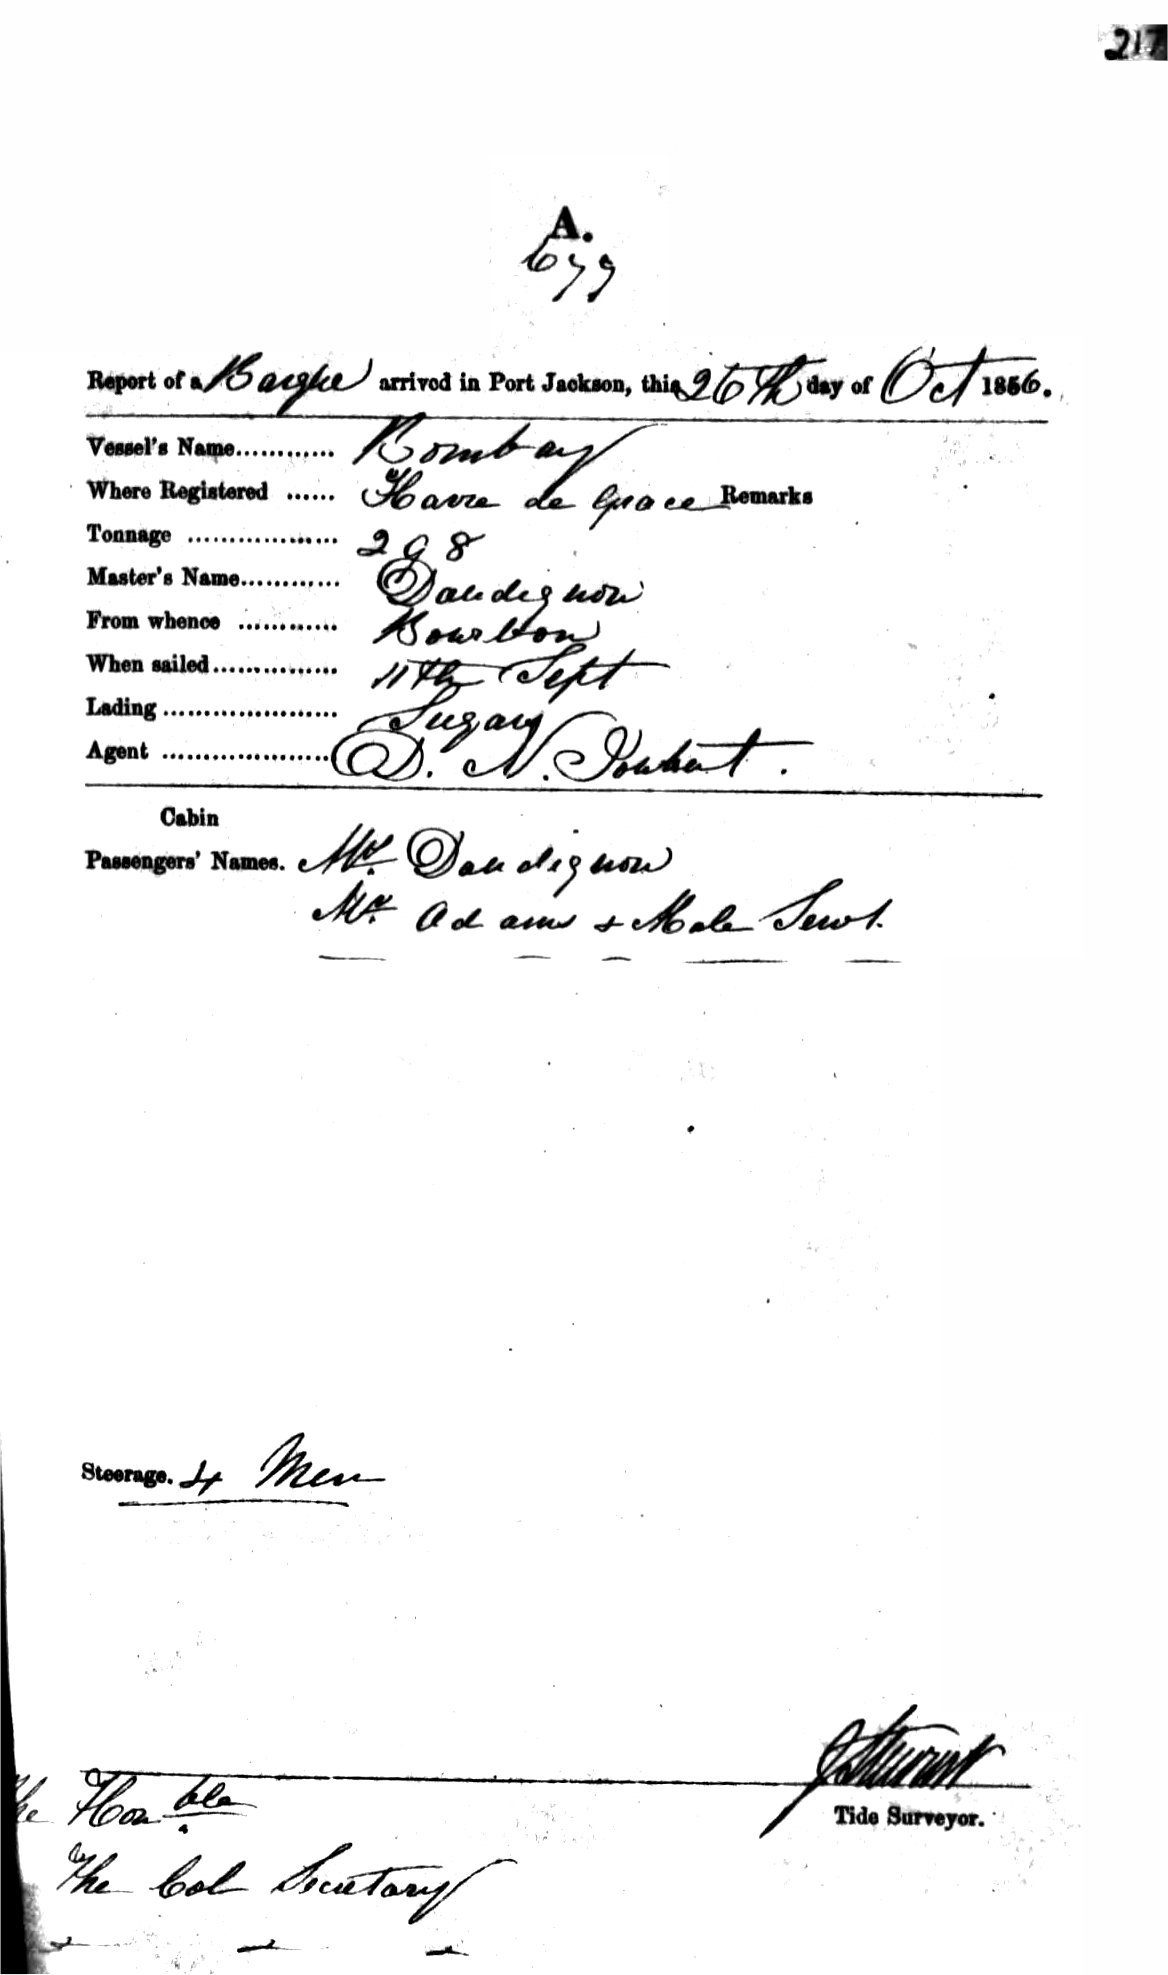 217
A.
679
Report of a Barque arrived in Port Jackson, this 26th day of Oct 1856.
Vessel's Name............ Bombay
Where Registered ...... Havre de Grace Remarks
Tonnage .................. 298
Master's Name............ Dandignon
From whence ............ Bourbon
When sailed............... 11th Sept
Lading ..................... Sugar
Agent .................... D. N. Joubert.
Cabin
Passengers' Names. Mr. Dandignon
Mr. Adams + Male Servt.
Steerage. 4 Men
The Honble
Tide Surveyor.
The Col Secretary